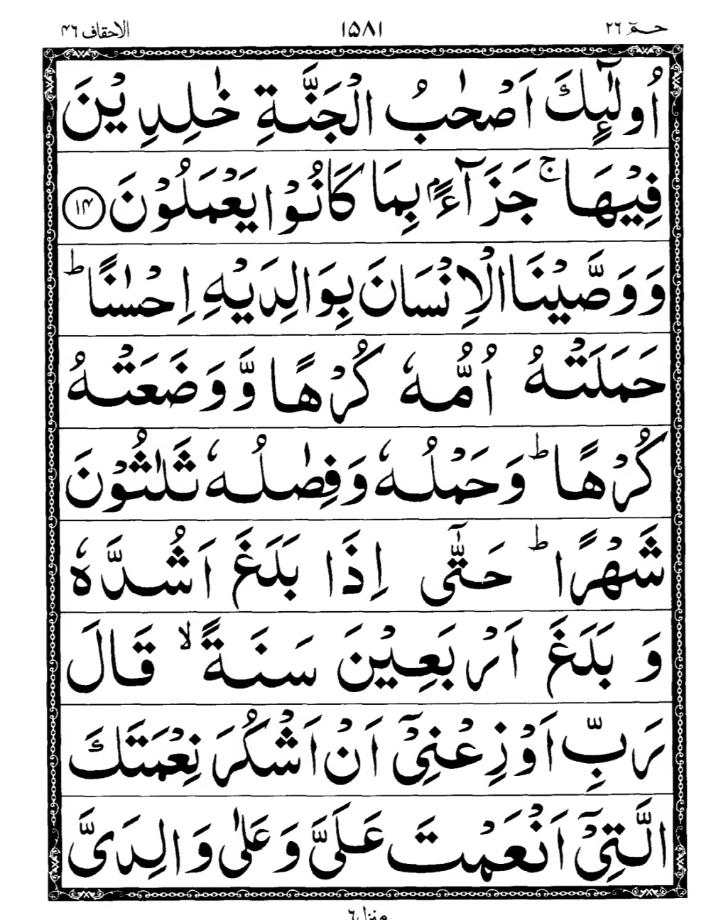 حٰـمٓ ٢٦
١٥٨١
الاحقاف ٤٦
اُولٰٓئِكَ اَصْحٰبُ الْجَنَّةِ خٰلِدِيْنَ
فِيْهَا ۚ جَزَآءًۢ بِمَا كَانُوْا يَعْمَلُوْنَ ۝۱۴
وَوَصَّيْنَا الْاِنْسَانَ بِوَالِدَيْهِ اِحْسٰنًا ؕ
حَمَلَتْهُ اُمُّهٗ كُرْهًا وَّوَضَعَتْهُ
كُرْهًا ؕ وَحَمْلُهٗ وَفِصٰلُهٗ ثَلٰثُوْنَ
شَهْرًا ؕ حَتّٰٓى اِذَا بَلَغَ اَشُدَّهٗ
وَ بَلَغَ اَرْبَعِيْنَ سَنَةً ۙ قَالَ
رَبِّ اَوْزِعْنِيْٓ اَنْ اَشْكُرَ نِعْمَتَكَ
الَّتِيْٓ اَنْعَمْتَ عَلَيَّ وَعَلٰى وَالِدَيَّ
منزل ٦